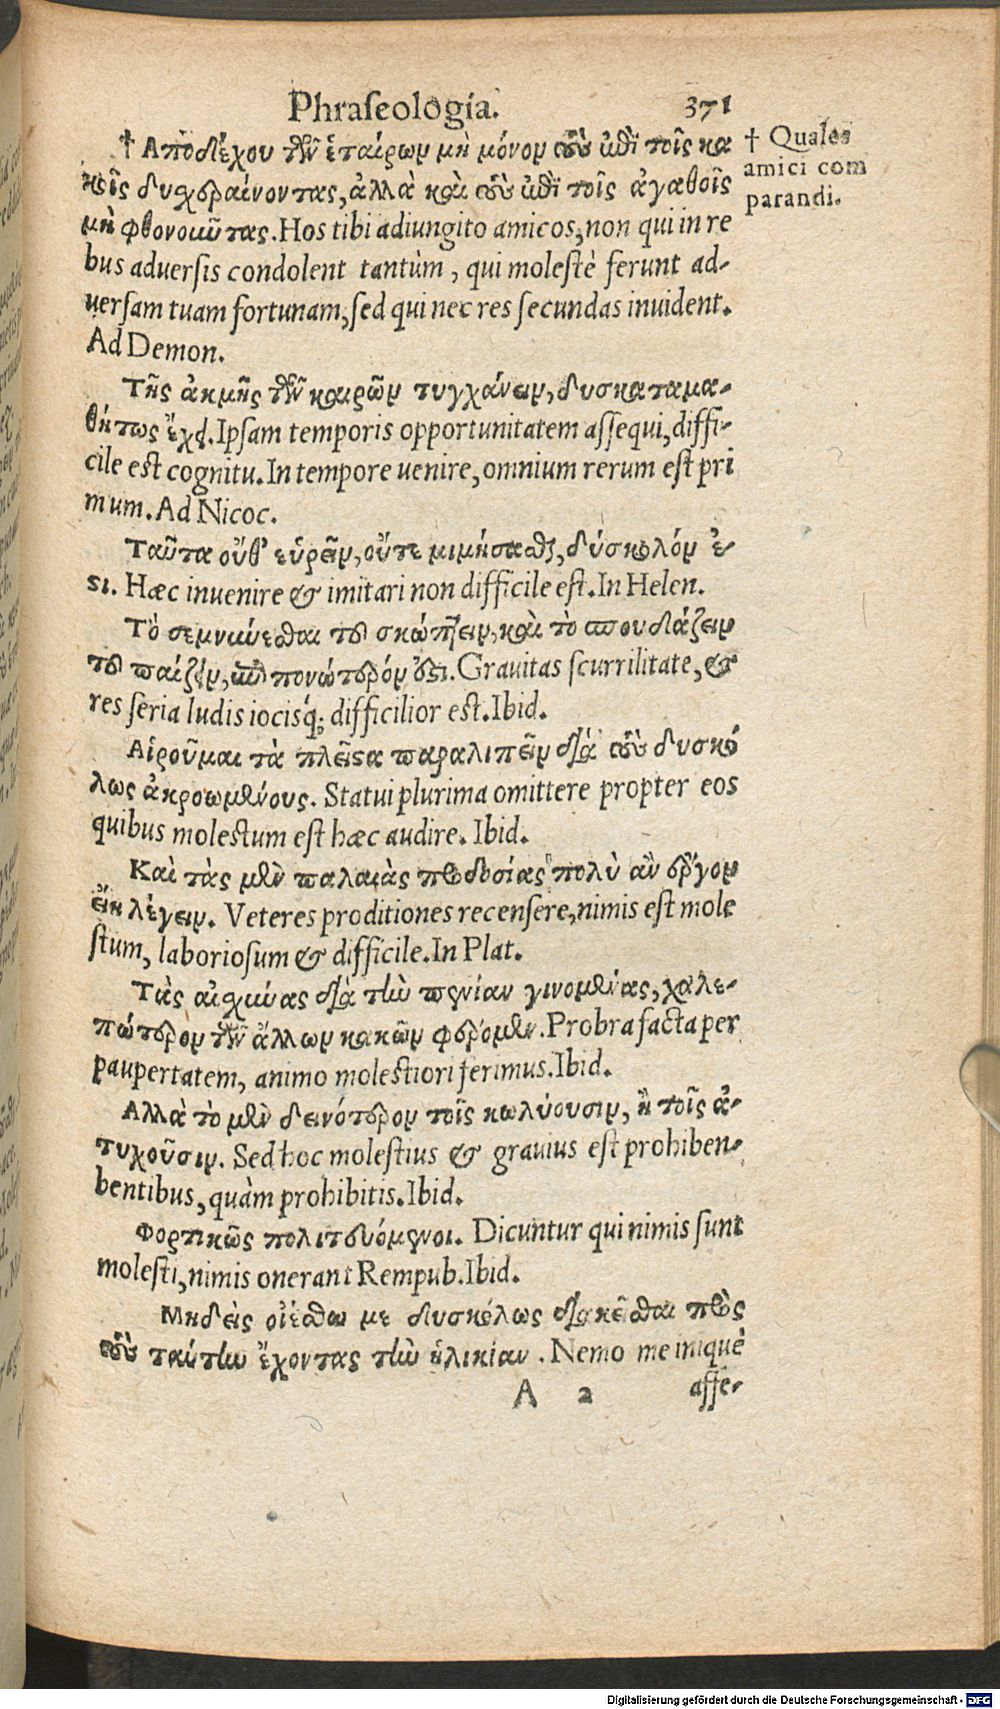 Phraſeologia. 371
† Αποδέχου τῶν ἑταίρων μὴ μόνον τοὺς ἐπὶ τοῖς κα
κοῖς δυσχεραίνοντας, ἀλλὰ καὶ τοὺς ἐπὶ τοῖς ἀγαθοῖς
μὴ φθονοῦντας. Hos tibi adiungito amicos, non qui in re
bus aduerſis condolent tantùm, qui moleſtè ferunt ad-
uerſam tuam fortunam, ſed qui nec res ſecundas inuident.
Ad Demon.
† Quales
amici com
parandi.
Τῆς ἀκμῆς τῶν καιρῶν τυγχάνειν, δυσκαταμα-
θήτως ἔχει. Ipſam temporis opportunitatem aſſequi, diffi-
cile eſt cognitu. In tempore uenire, omnium rerum eſt pri
mum. Ad Nicoc.
Ταῦτα οὔθ' εὑρεῖν, οὔτε μιμήσασθαι, δύσκολόν ἐ-
ϛι. Hæc inuenire & imitari non difficile eſt. In Helen.
Τὸ σεμνύνεσθαι τοῦ σκώπτειν, καὶ τὸ σπουδάζειν
τοῦ παίζειν, ἐπιπονώτερόν ἐϛι. Grauitas ſcurrilitate, &
res ſeria ludis iocisq́; difficilior eſt. Ibid.
Αἱροῦμαι τὰ πλεῖϛα παραλιπεῖν διὰ τοὺς δυσκό
λως ἀκροωμένους. Statui plurima omittere propter eos
quibus moleſtum eſt hæc audire. Ibid.
Καὶ τὰς μὲν παλαιὰς προδοσίας πολὺ ἂν ἔργον
εἴη λέγειν. Veteres proditiones recenſere, nimis eſt mole
ſtum, laborioſum & difficile. In Plat.
Τὰς αἰσχύνας διὰ τὴν πενίαν γινομένας, χαλε-
πώτερον τῶν ἄλλων κακῶν φέρομεν. Probra facta per
paupertatem, animo moleſtiori ferimus. Ibid.
Αλλὰ τὸ μὲν δεινότερον τοῖς κωλύουσιν, ἢ τοῖς ἀ-
τυχοῦσιν. Sed hoc moleſtius & grauius eſt prohiben-
bentibus, quàm prohibitis. Ibid.
Φορτικῶς πολιτευόμενοι. Dicuntur qui nimis ſunt
moleſti, nimis onerant Rempub. Ibid.
Μηδεὶς οἰέσθω με δυσκόλως διακεῖσθαι πρὸς
τοὺς ταύτην ἔχοντας τὴν ἡλικίαν. Nemo me iniquè
A 2 affe-
Digitalisierung gefördert durch die Deutsche Forschungsgemeinschaft - DFG